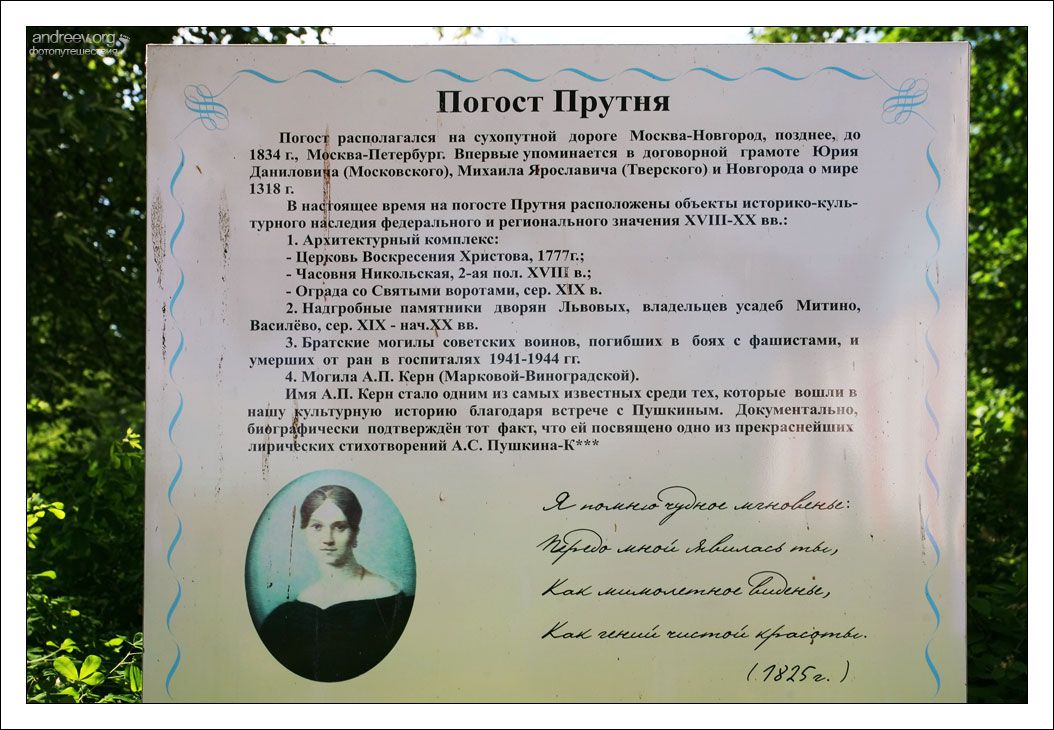 andreev.org
фотопутешествия
Погост Прутня
Погост располагался на сухопутной дороге Москва-Новгород, позднее, до
1834 г., Москва-Петербург. Впервые упоминается в договорной грамоте Юрия
Даниловича (Московского), Михаила Ярославича (Тверского) и Новгорода о мире
1318 г.
В настоящее время на погосте Прутня расположены объекты историко-куль-
турного наследия федерального и регионального значения XVIII-XX вв.:
1. Архитектурный комплекс:
- Церковь Воскресения Христова, 1777г.;
- Часовня Никольская, 2-ая пол. XVIII в.;
- Ограда со Святыми воротами, сер. XIX в.
2. Надгробные памятники дворян Львовых, владельцев усадеб Митино,
Василёво, сер. XIX - нач.XX вв.
3. Братские могилы советских воинов, погибших в боях с фашистами, и
умерших от ран в госпиталях 1941-1944 гг.
4. Могила А.П. Керн (Марковой-Виноградской).
Имя А.П. Керн стало одним из самых известных среди тех, которые вошли в
нашу культурную историю благодаря встрече с Пушкиным. Документально,
биографически подтверждён тот факт, что ей посвящено одно из прекраснейших
лирических стихотворений А.С. Пушкина-К***
Я помню чудное мгновенье:
Передо мной явилась ты,
Как мимолетное виденье,
Как гений чистой красоты.
(1825 г.)